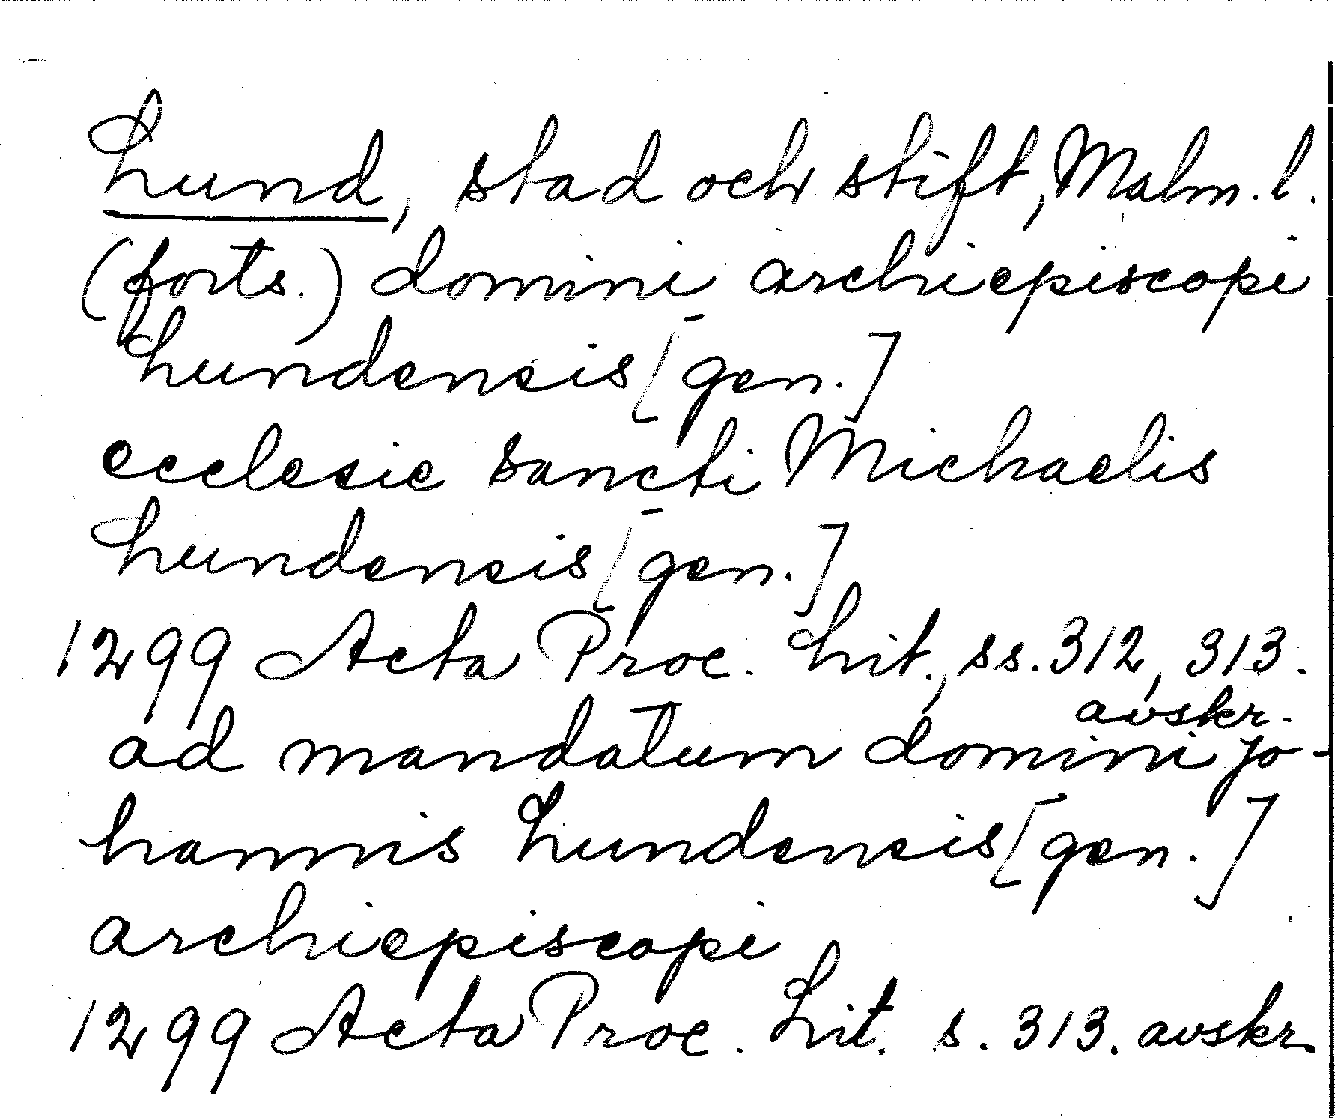 Lund, stad och stift, Malm. l.
(forts.) domini archiepiscopi
Lundensis [gen.]
ecclesie sancti Michaelis
Lundensis [gen.]
1299 Acta Proc. Lit., ss. 312, 313.
avskr.
ad mandatum domini jo-
hannis Lundensis [gen.]
archiepiscopi
1299 Acta Proc. Lit. s. 313. avskr.